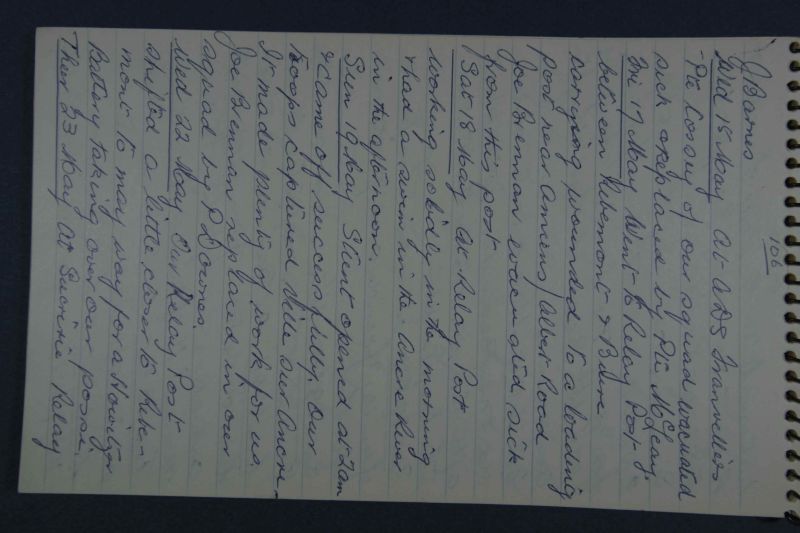 106
J Barnes.
Wed 15 May At ADS Franvillers
- Pte Cosny of our squad evacuated
sick & replaced by Pte McLeay.
Fri 17 May Went to Relay Post
between Ribemont & B
carrying wounded to a loading
post near Amiens / Albert Road
Joe Brennan evacuated sick
from this post
Sat 18 May At Relay Post
working solidly in the morning
& had a swim in the Ancre River
in the afternoon.
Sun 19 May Stunt opened at 2am
& came off successfully. Our
troops captured Ville sur Ancre.
It made plenty of work for us.
Joe Brennan replaced in our
squad by P Downes.
Wed 22 May Our Relay Post
shifted a little closer to Ribe-
mont to make way for a Howitzer
Battery taking over our possi.
Thur 23 May At Sucrine Relay